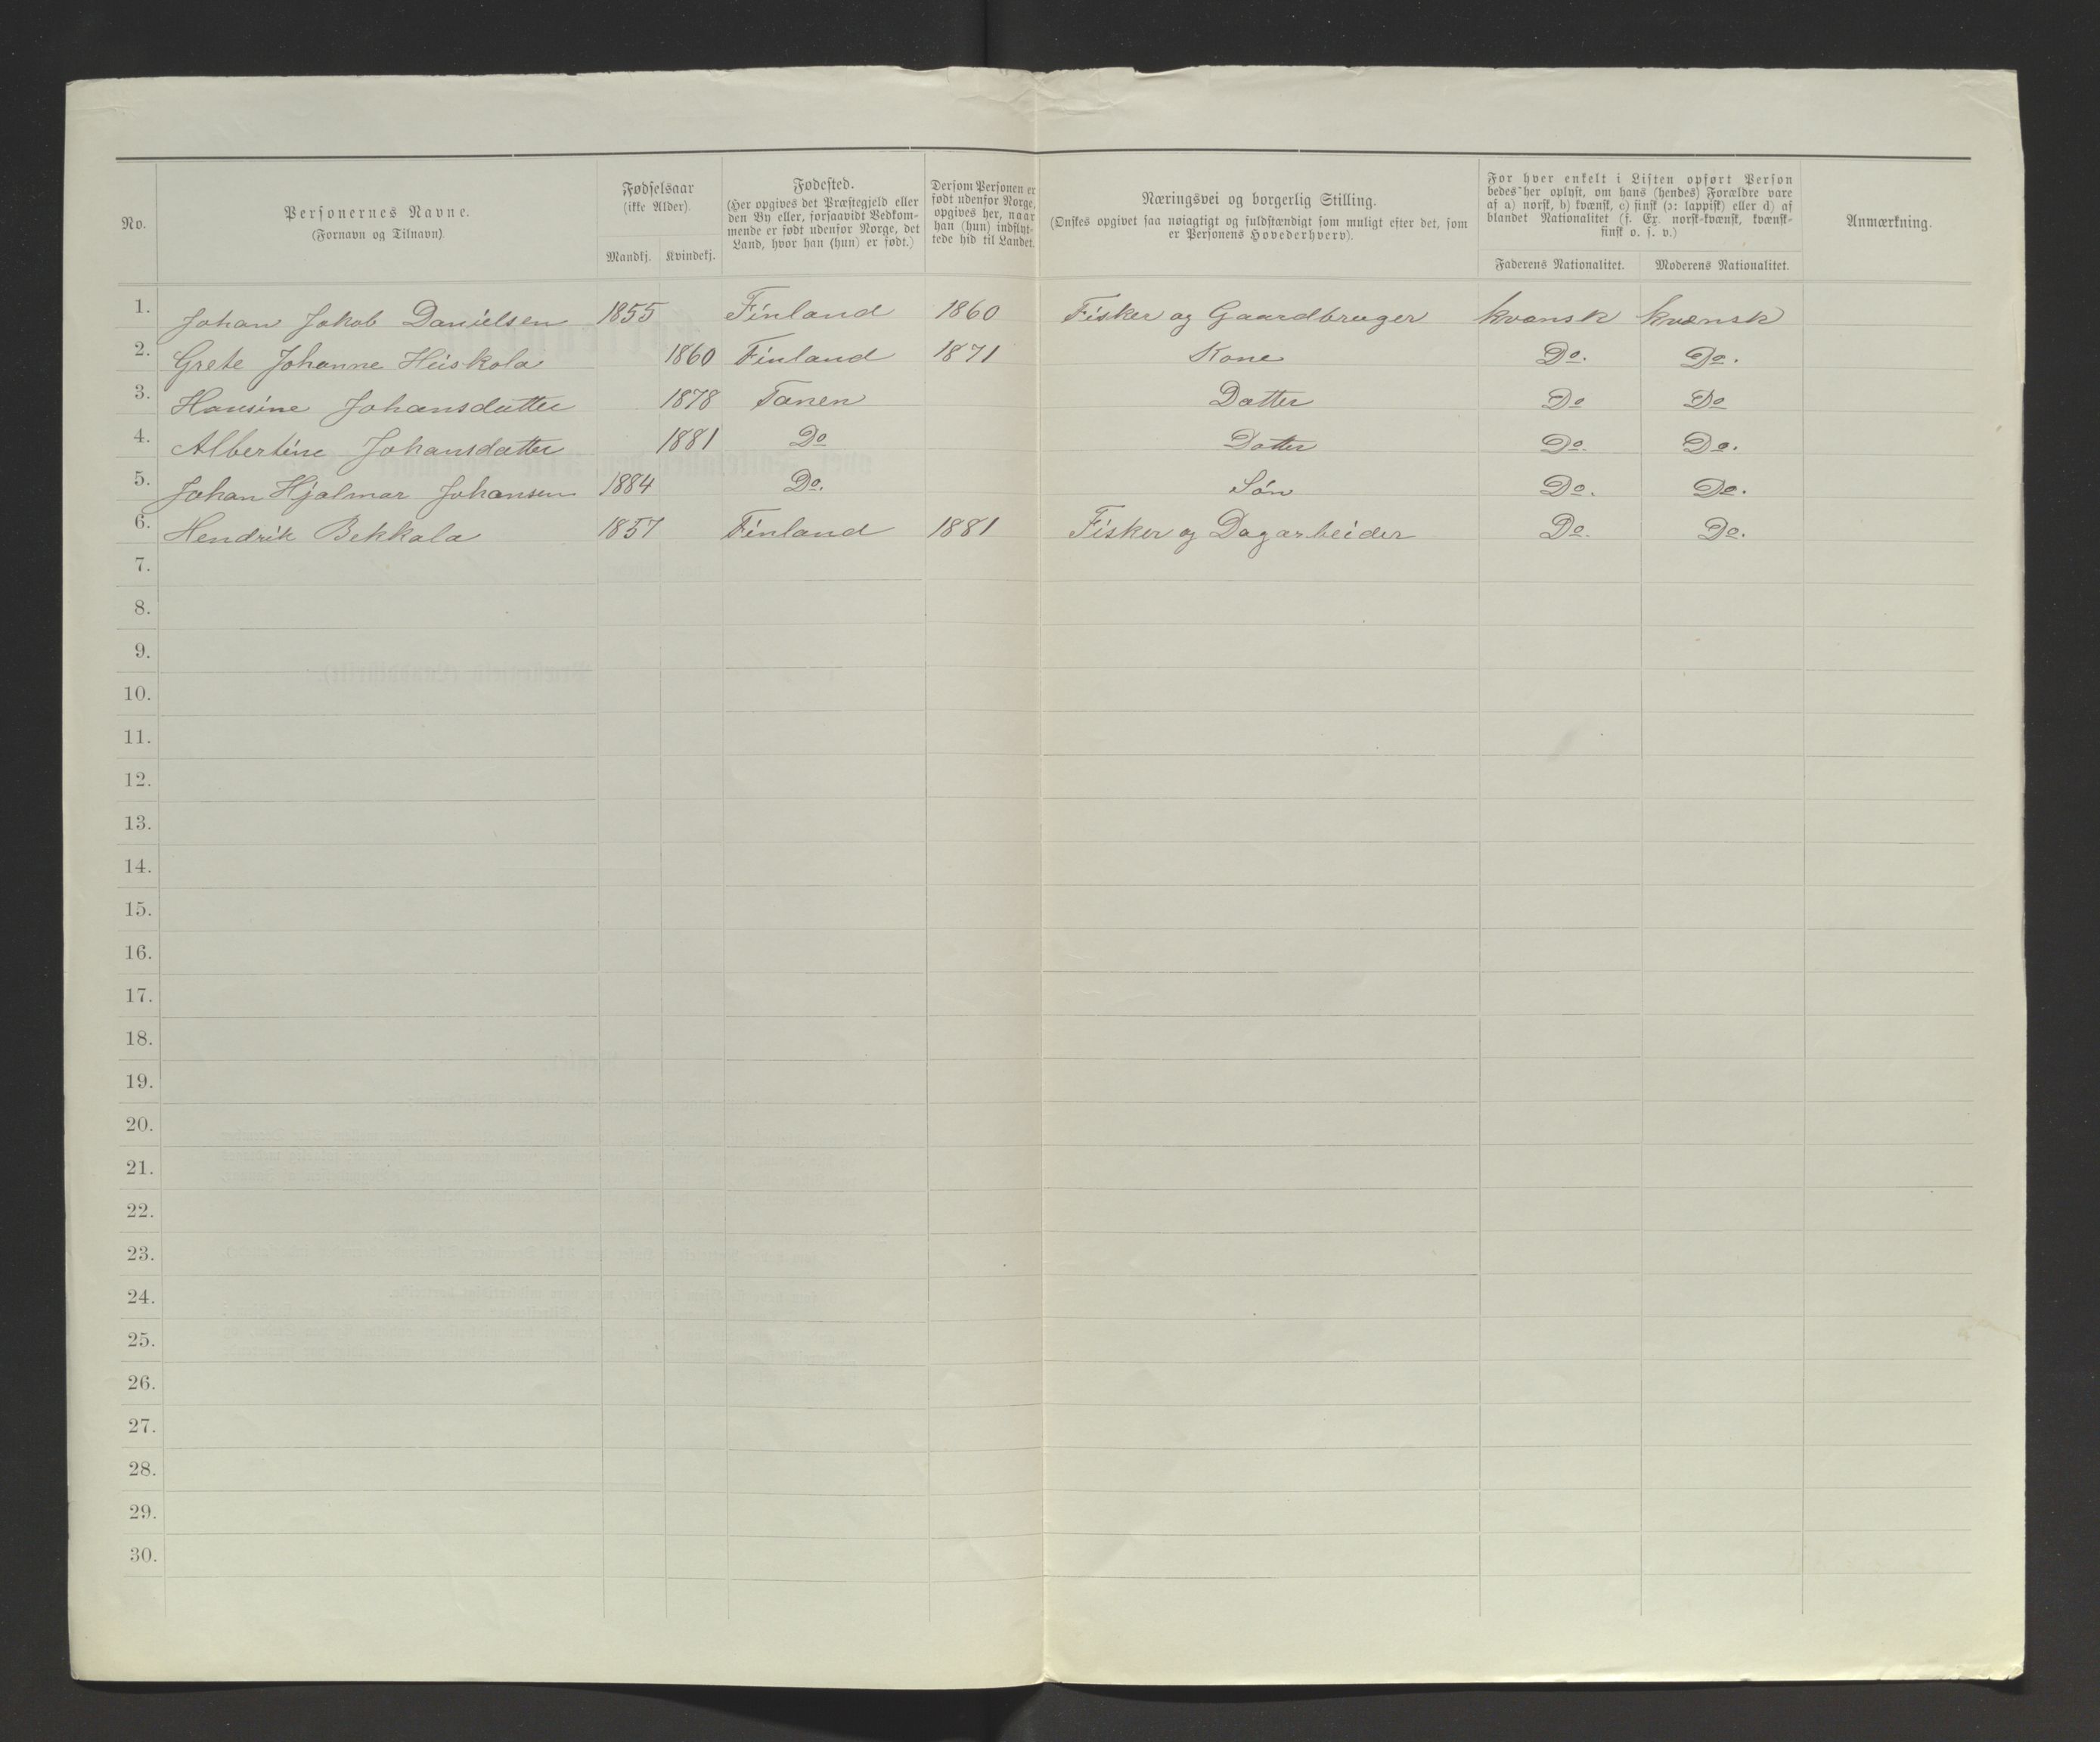 No.
Personernes Navne.
(Fornavn og Tilnavn).
Fødselsaar
(ikke Alder).
Mandkj. Kvindekj.
Fødested.
(Her opgives det Præstegjeld eller
den By eller, forsaavidt Vedkom-
mende er født udenfor Norge, det
Land, hvor han (hun) er født.)
Dersom Personen er
født udenfor Norge,
opgives her, naar
han (hun) indflyt-
tede hid til Landet.
Næringsvei og borgerlig Stilling.
(Ønskes opgivet saa nøiagtigt og fuldstændigt som muligt efter det, som
er Personens Hovederhverv).
For hver enkelt i Listen opført Person
bedes her oplyst, om hans (hendes) Forældre vare
af a) norsk, b) kvænsk, c) finsk (ɔ: lappisk) eller d) af
blandet Nationalitet (f. Ex. norsk-kvænsk, kvænsk-
finsk o. s. v.)
Faderens Nationalitet. Moderens Nationalitet.
Anmærkning.
1. Johan Jakob Danielsen 1855 Finland 1860 Fisker og Gaardbruger kvænsk kvænsk
2. Grete Johanne Heiskola 1860 Finland 1871 Kone Do. Do.
3. Hansine Johansdatter 1878 Tanen Datter Do Do
4. Albertine Johansdatter 1881 Do Datter Do. Do.
5. Johan Hjalmar Johansen 1884 Do. Søn Do. Do.
6. Hendrik Bekkala 1857 Finland 1881 Fisker og Dagarbeider Do. Do.
7.
8.
9.
10.
11.
12.
13.
14.
15.
16.
17.
18.
19.
20.
21.
22.
23.
24.
25.
26.
27.
28.
29.
30.